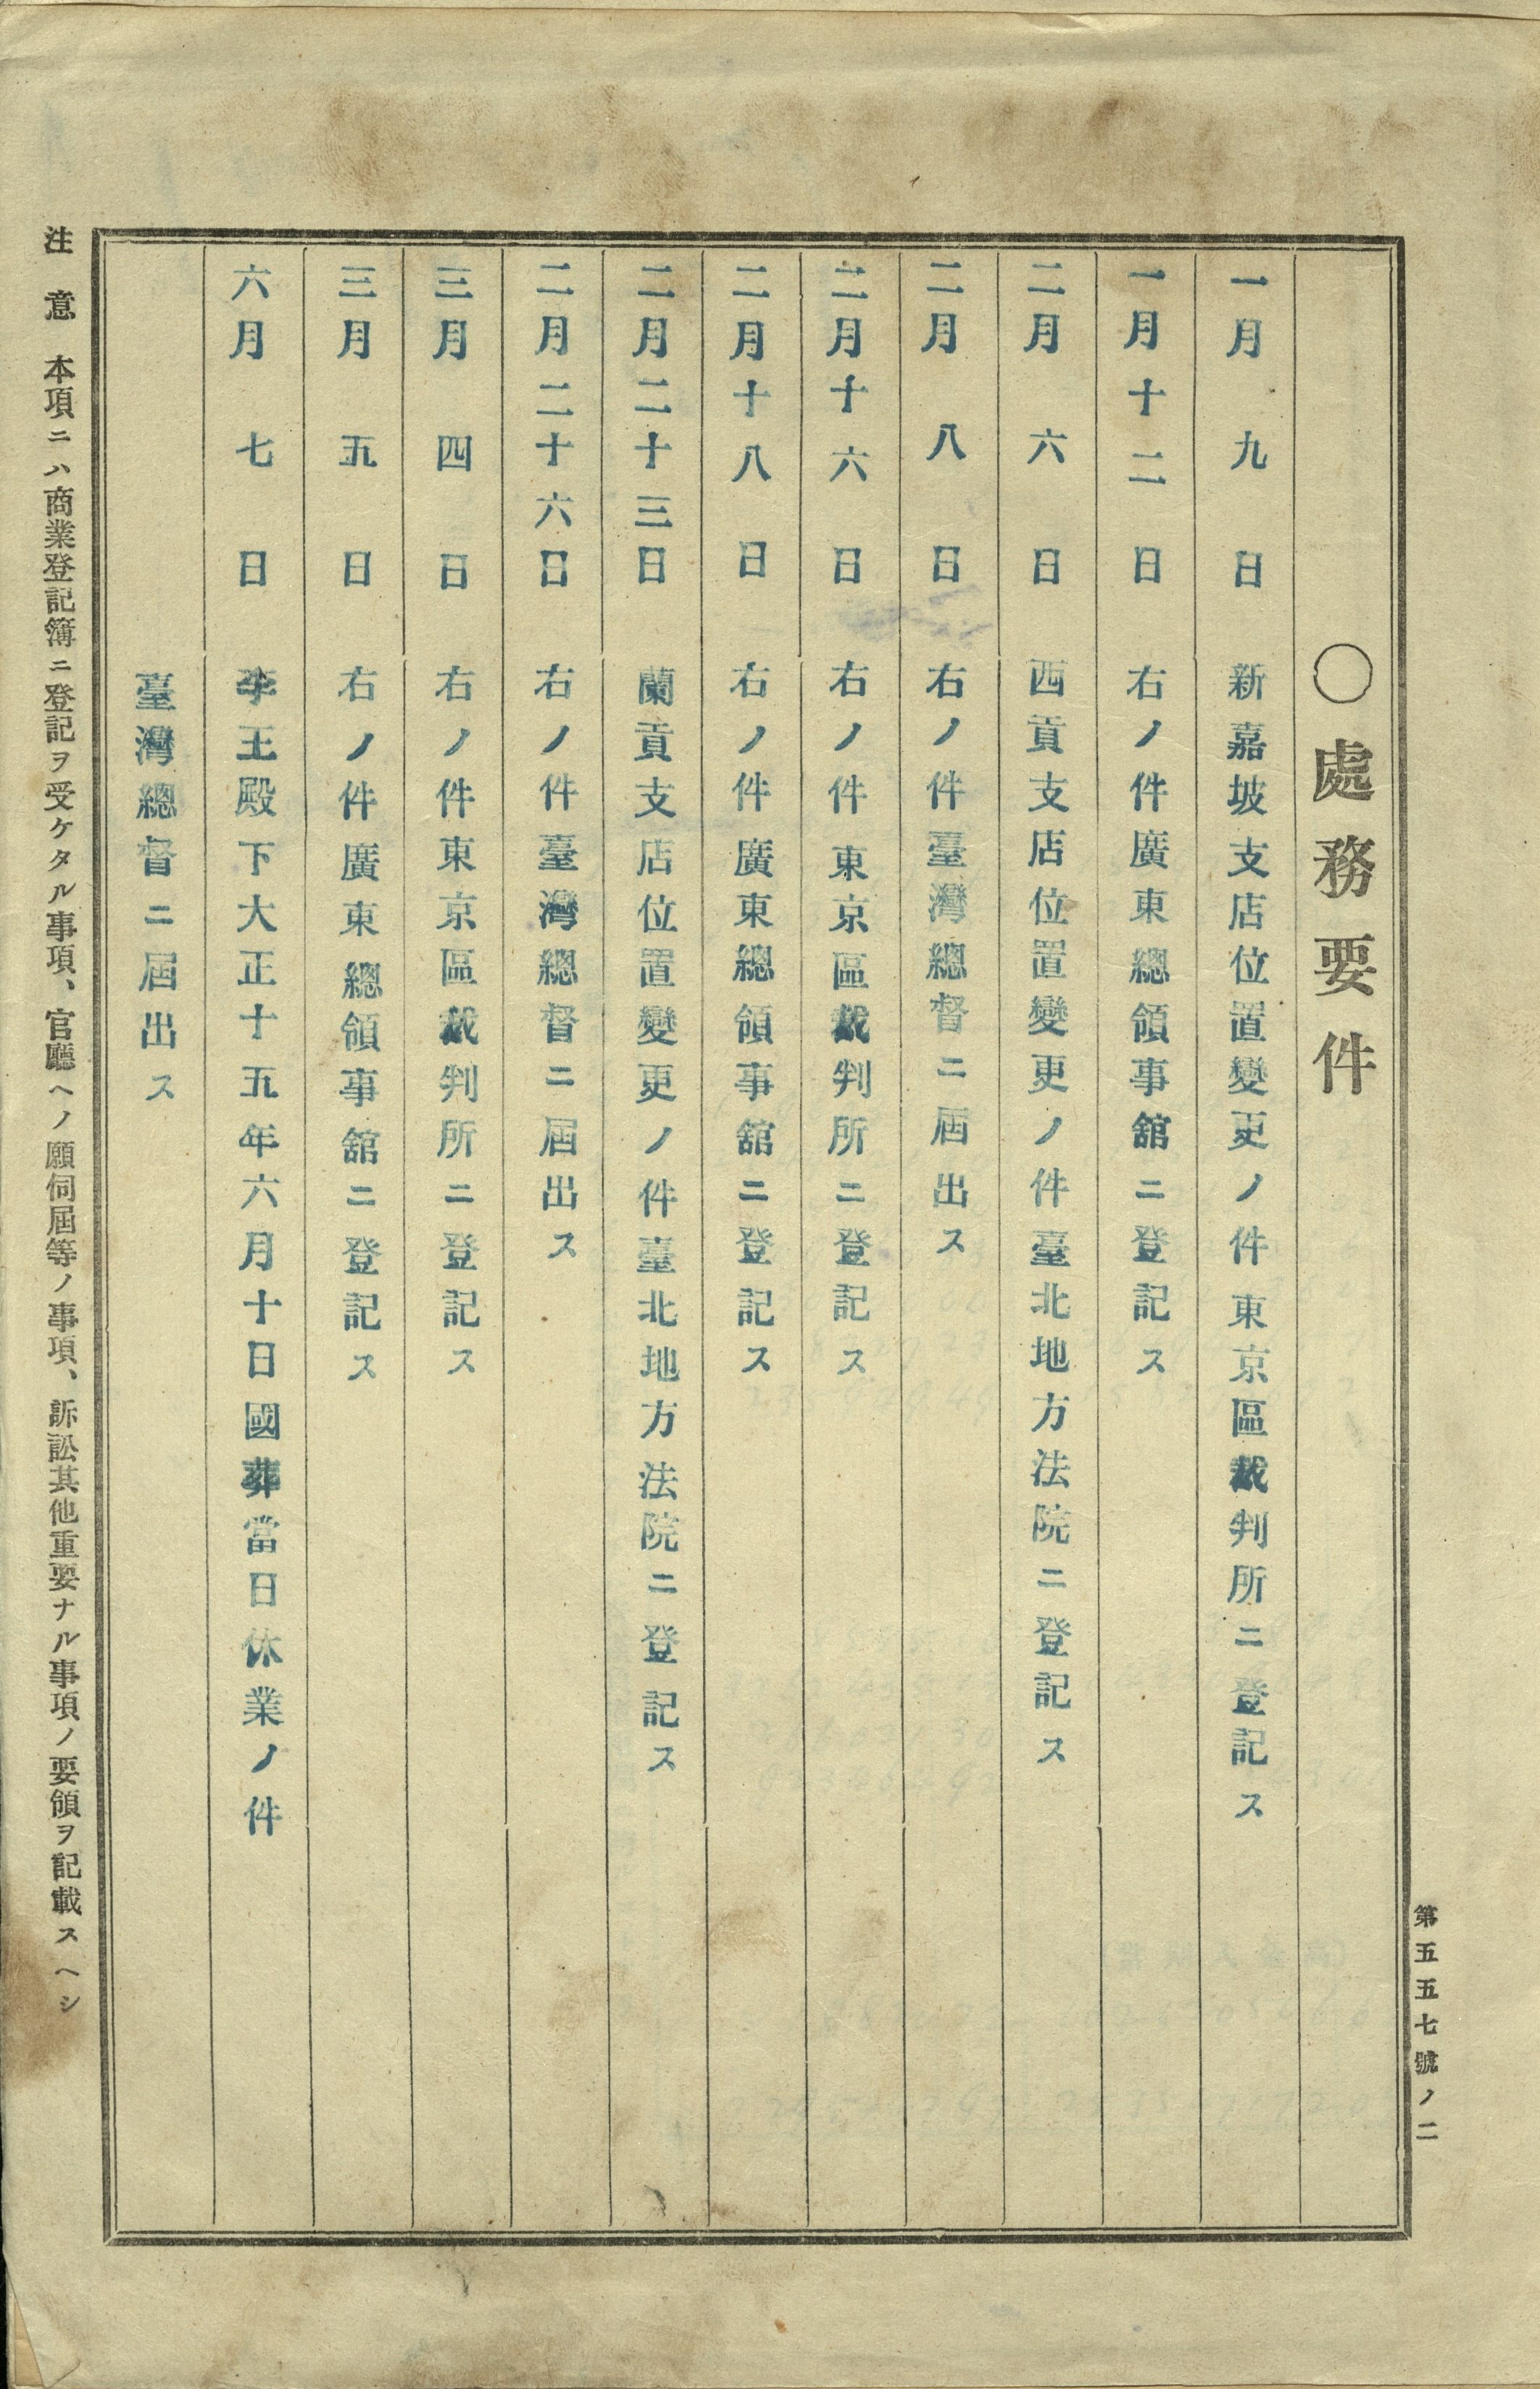 第五五七號ノ二
〇處務要件
一月九日 新嘉坡支店位置變更ノ件東京區裁判所ニ登記ス
一月十二日 右ノ件廣東總領事舘ニ登記ス
二月六日 西貢支店位置變更ノ件臺北地方法院ニ登記ス
二月八日 右ノ件臺灣總督ニ屆出ス
二月十六日 右ノ件東京區裁判所ニ登記ス
二月十八日 右ノ件廣東總領事舘ニ登記ス
二月二十三日 蘭貢支店位置變更ノ件臺北地方法院ニ登記ス
二月二十六日 右ノ件臺灣總督ニ屆出ス
三月四日 右ノ件東京區裁判所ニ登記ス
三月五日 右ノ件廣東總領事舘ニ登記ス
六月七日 李王殿下大正十五年六月十日國葬當日休業ノ件
臺灣總督ニ屆出ス
注意 本項ニハ商業登記簿ニ登記ヲ受ケタル事項、官廳ヘノ願伺屆等ノ事項、訴訟其他重要ナル事項ノ要領ヲ記載スヘシ